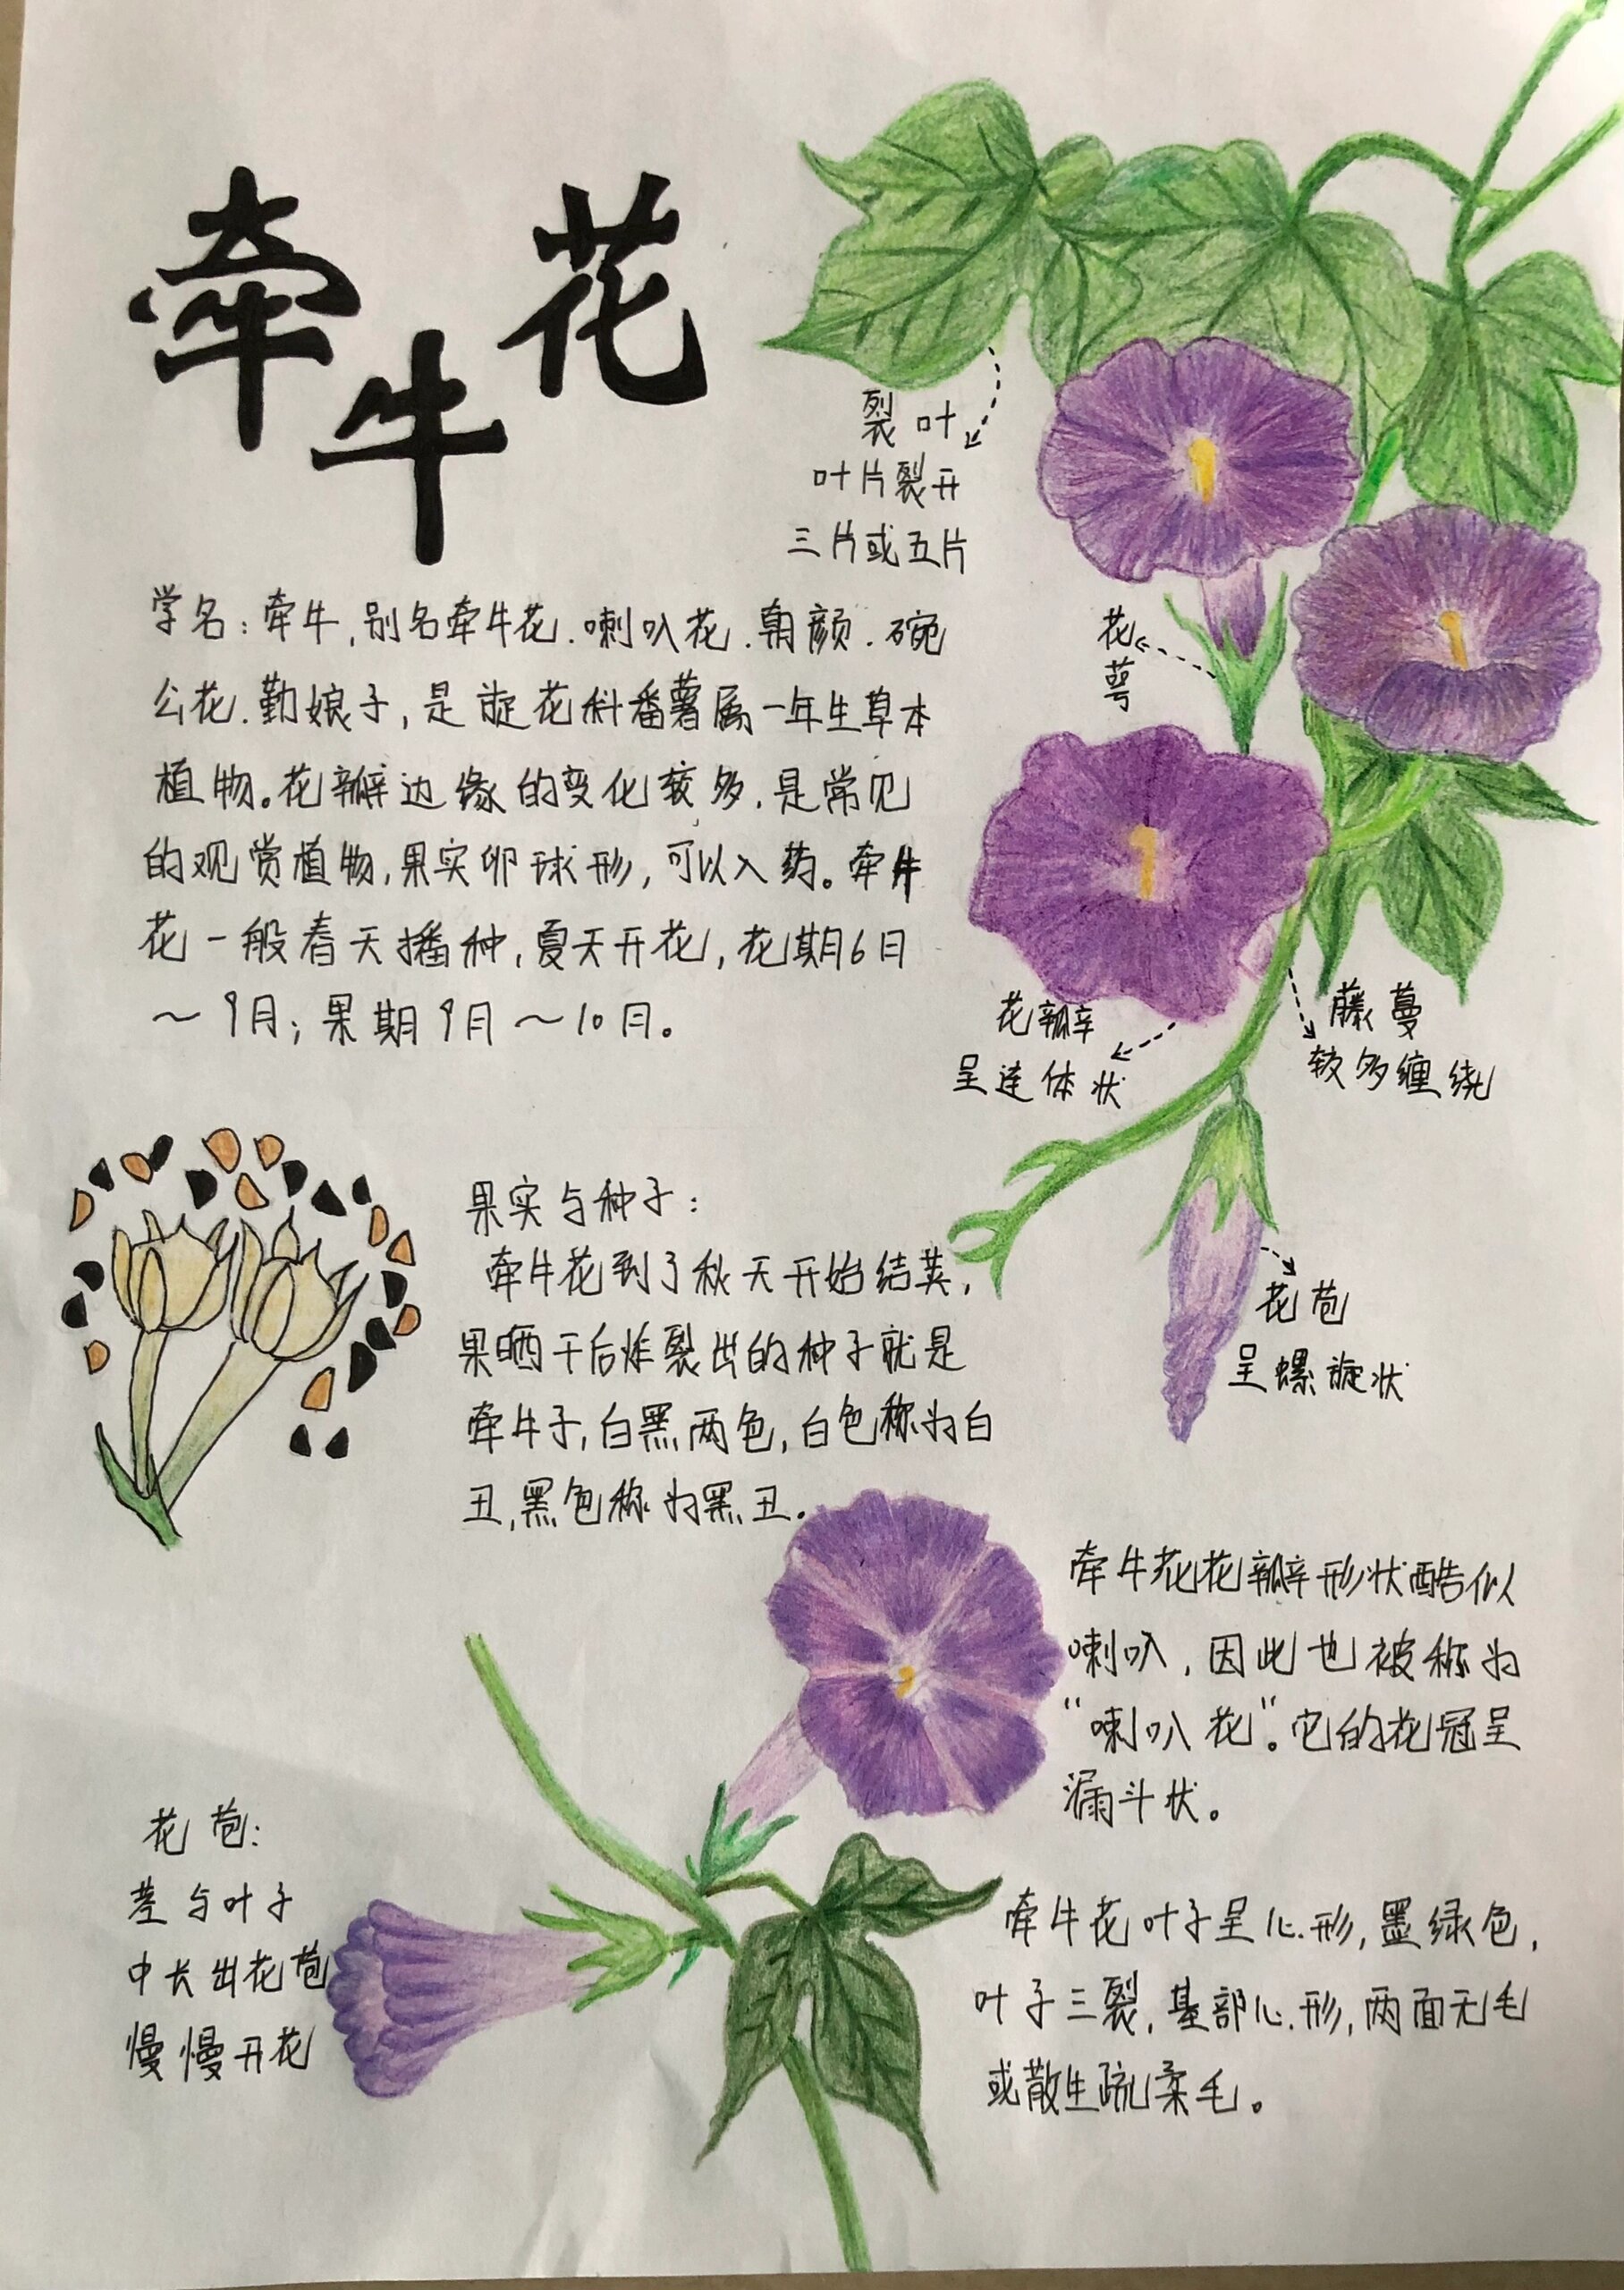 牵牛花
裂叶
叶片裂开
三片或五片
学名:牵牛,别名牵牛花.喇叭花.朝颜.碗
公花.勤娘子,是旋花科番薯属一年生草本
植物。花瓣边缘的变化较多,是常见
的观赏植物,果实卵球形,可以入药。牵牛
花一般春天播种,夏天开花,花期6日
~9月;果期9月~10月。
花
萼
花瓣
呈连体状
藤蔓
较多缠绕
果实与种子:
牵牛花到了秋天开始结荚,
果晒干后炸裂出的种子就是
牵牛子,白黑两色,白色称为白
丑,黑色称为黑丑.
花苞
呈螺旋状
牵牛花花瓣形状酷似
喇叭,因此也被称为
“喇叭花”。它的花冠呈
漏斗状。
花苞:
茎与叶子
中长出花苞
慢慢开花
牵牛花叶子呈心形,墨绿色,
叶子三裂,基部心形,两面无毛
或散生疏柔毛。